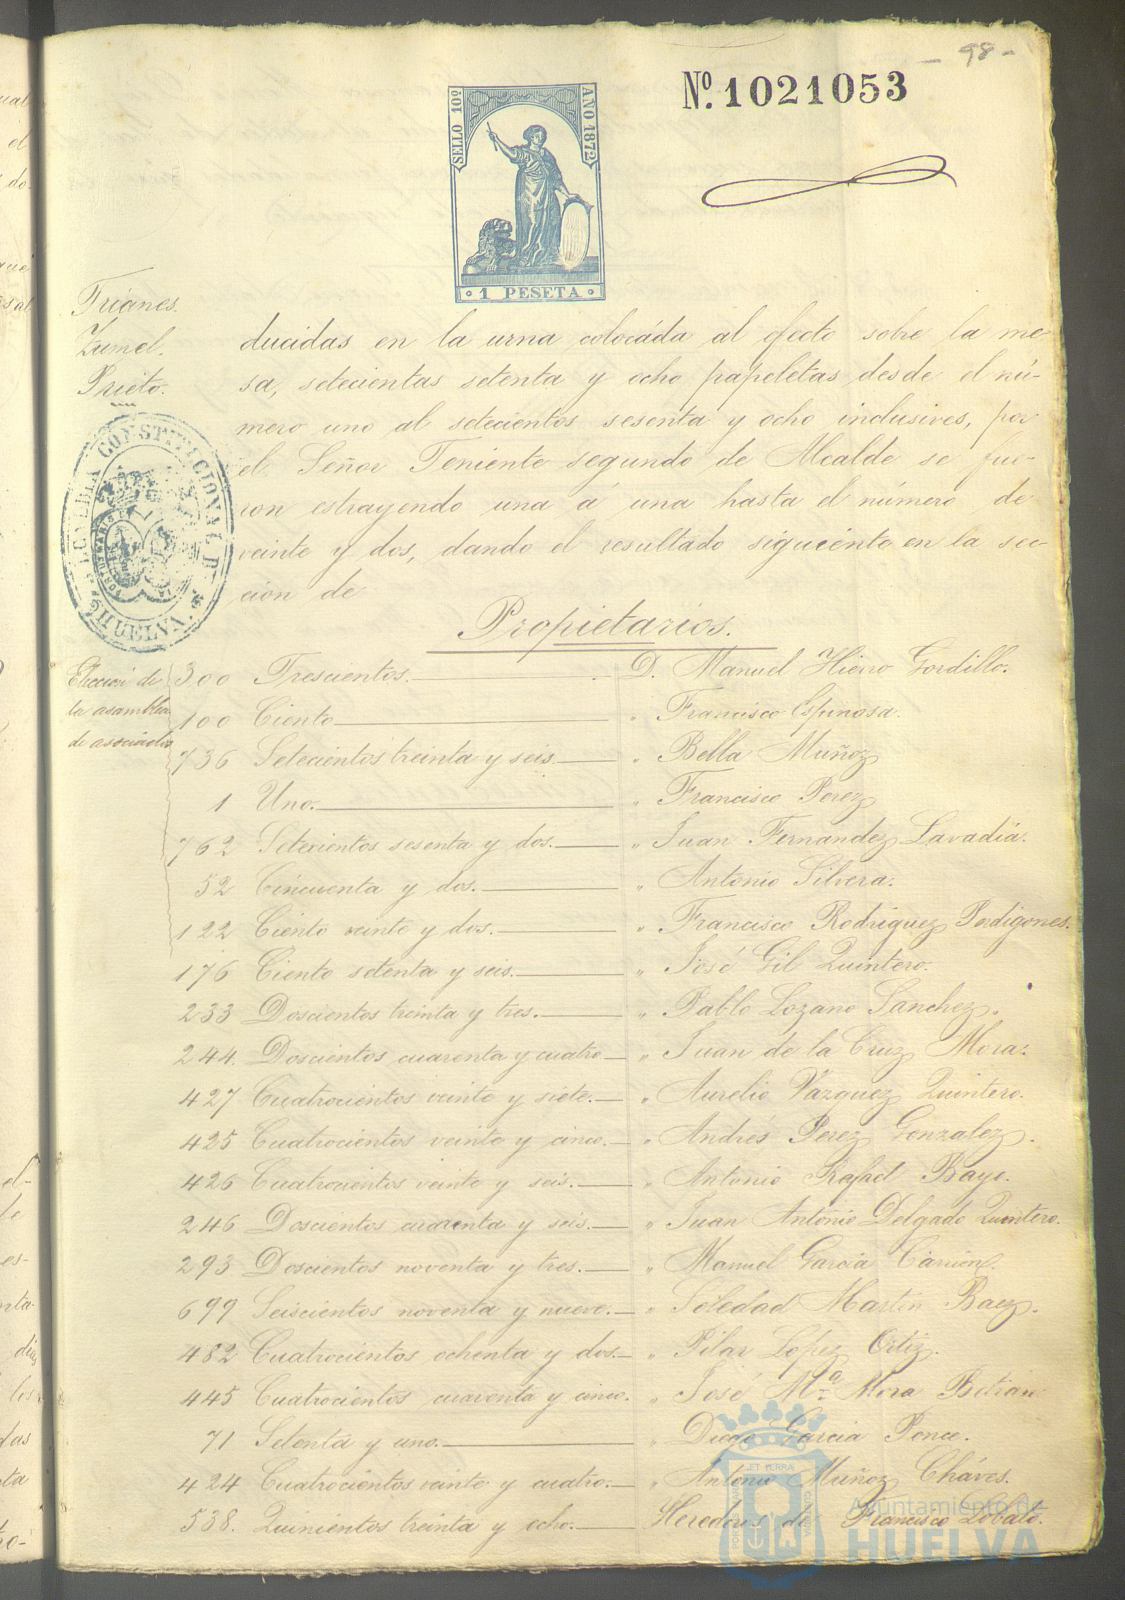 - 98 -
Nº. 1021053
SELLO 10º
AÑO 1872
1 PESETA
Trianes.
Zumel.
Prieto.
ducidas en la urna colocada al efecto sobre la me-
sa, setecientas setenta y ocho papeletas desde el nú-
mero uno al setecientos sesenta y ocho inclusives, por
el Señor Teniente segundo de Alcalde se fue-
ron estrayendo una á una hasta el número de
veinte y dos, dando el resultado siguiente en la sec-
ción de
ALCALDIA CONSTITUCIONAL DE HUELVA
Propietarios.
Eleccion de
la asamblea
de asociados
300 Trescientos. D. Manuel Hierro Gordillo.
100 Ciento " Francisco Espinosa.
736 Setecientos treinta y seis. " Bella Muñoz
1 Uno. " Francisco Perez
762 Setecientos sesenta y dos. " Juan Fernandez Lavadia.
52 Cincuenta y dos. " Antonio Silvera.
122 Ciento veinte y dos. " Francisco Rodriguez Perdigones.
176 Ciento setenta y seis. " José Gil Quintero.
233 Doscientos treinta y tres. " Pablo Lozano Sanchez.
244. Doscientos cuarenta y cuatro " Juan de la Cruz Mora.
427 Cuatrocientos veinte y siete. " Aurelio Vazquez Quintero.
425 Cuatrocientos veinte y cinco. " Andrés Perez Gonzalez.
426 Cuatrocientos veinte y seis. " Antonio Rafael Bayo.
246 Doscientos cuarenta y seis. " Juan Antonio Delgado Quintero.
293 Doscientos noventa y tres. " Manuel Garcia Carrion.
699 Seiscientos noventa y nueve. " Soledad Martin Baez.
482 Cuatrocientos ochenta y dos. " Pilar López Ortiz.
445 Cuatrocientos cuarenta y cinco. " José Mª Mora Beltran
71 Setenta y uno. " Diego Garcia Ponce.
424 Cuatrocientos veinte y cuatro. " Antonio Muñoz Cháves.
538. Quinientos treinta y ocho. Herederos de Francisco Lobato.
Ayuntamiento de
HUELVA